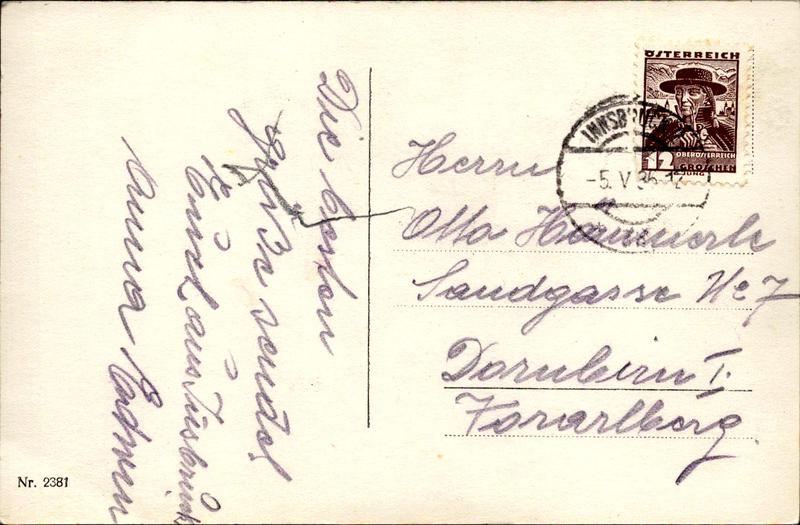 Die besten
Grüße sendet
Euch aus Innsbruck
Anna Edwin
ÖSTERREICH
12
OBERÖSTERREICH
GROSCHEN
INNSBRUCK
-5. V. 36-12
Herrn
Otto Hämmerle
Sandgasse No 7
Dornbirn I.
Vorarlberg.
Nr. 2381